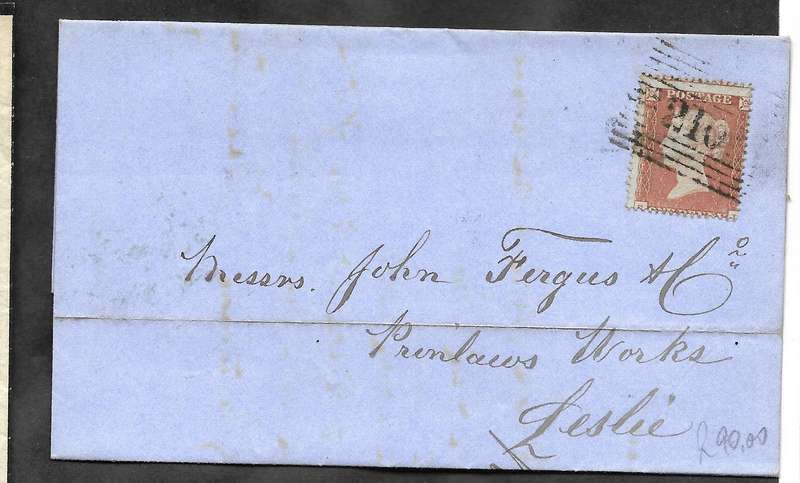 POSTAGE
210
Messrs. John Fergus & Co
Prinlaws Works
Leslie
90,00